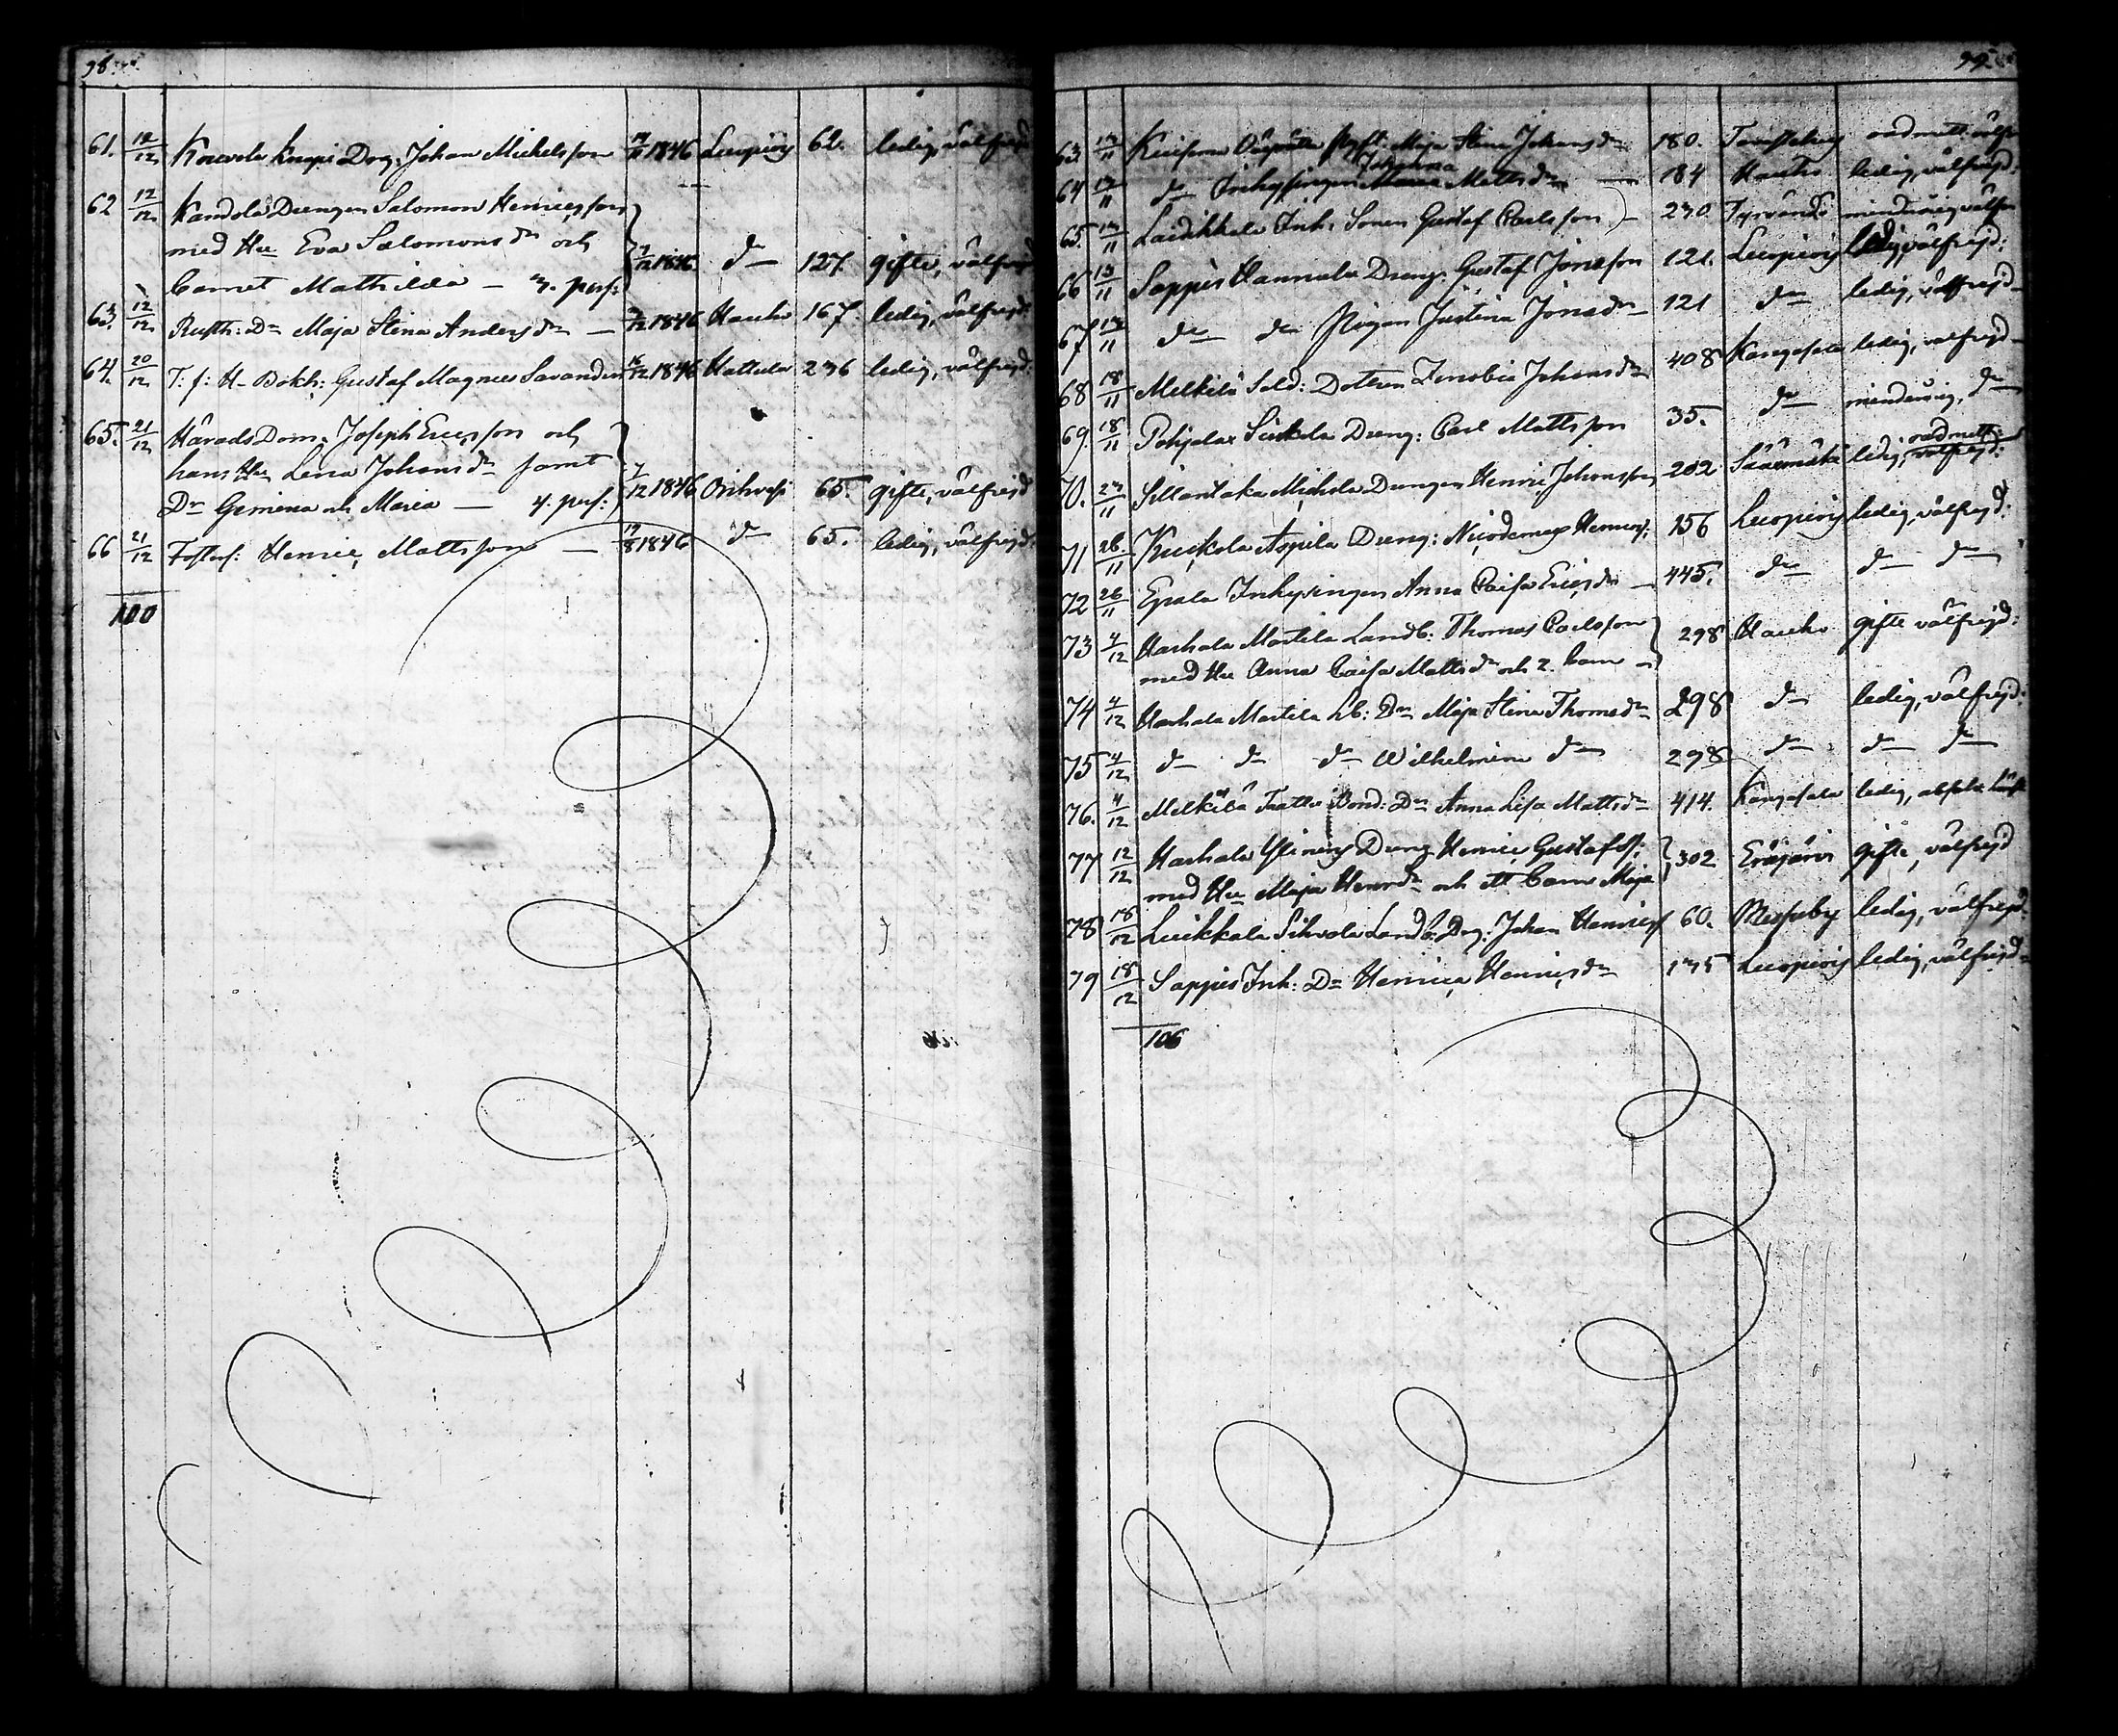 98.
61. 12/12 Kouvola Knapi Drg: Johan Michelsson 1846 Luopiois 62. ledig, välfrejd
62 12/12 Kandola Drengen Salomon Henricsson
med Hu Eva Salomonsdr och
barnet Mathilda — 3. pers: 1846 do 127. gifte, välfrejd
63. 12/12 Rusth: Dr Maja Stina Andersdr — 1846 Hauho 167. ledig, välfrejd:
64. 20/12 T: f: H- Bokh: Gustaf Magnus Savander 1846 Hattula 236 ledig, välfrejd:
65. 21/12 Härads Dom: Joseph Ericsson och
hans Hu Lena Johansdr samt
Dr Gemina och Maria — 4. pers: 7/12 1846 Orihvesi 65. gifte, välfrejd
66 21/12 Fosters: Henric Mattsson — 1846 do 65. ledig, välfrejd:
100
99
63. Maja Stina Johansdr 180. Tavastehus
64 do Inhysingen Johanna Mattsdr — 184 Hauho ledig, välfrejd:
65. Laidikkala Inh: Sonen Gustaf Carlsson — 230. Tyrvändö minderårig välfr
66 13/11 Sappis Hannula Dreng: Gustaf Jonasson 121. Luopiois ledig, välfrejd:
67 do do Pigan Justina Jonasdr 121 do ledig, välfrejd
68 18/11 Melkilä Sold: Dottren Zenobia Johansdr 408 Kangasala ledig, välfrejd
69. 18/11 Pohjalax Dreng: Carl Mattsson 35. do minderårig, do
70. Sillantaka Michola Drengen Henric Johansson 202 Sääxmäki ledig, välfrejd:
71 26/11 Kuckola Aspila Dreng: Nicodemus Henrics: 156 Luopiois ledig, välfrejd:
72 26/11 Epala Inhysingen Anna Caisa Ericsdr — 445. do do do
73 4/12 Harhala Martila Landb: Thomas Carlsson
med Hu Anna Caisa Mattsdr och 2. barn 298 Hauho gifte välfrejd:
74 4/12 Harhala Martila Lb: Dr Maja Stina Thomasdr 298 do ledig, välfrejd:
75 4/12 do do do Wilhelmina do 298 do do do
76. 4/12 Melkilä Bond: Dr Anna Lisa Mattsdr 414. Kangasala ledig,
77 12/12 Harhala Dreng Henric Gustafss:
med Hu Maja Henrdr och ett barn Maja 302 Eräjärvi gifte, välfrejd
78 18/12 Luikkala Sihvola Landb: Drg: Johan Henrics 60. Messuby ledig, välfrejd.
79 18/12 Sappis Inh: Dr Henrica Henricsdr 135 Luopiois ledig, välfrejd
106